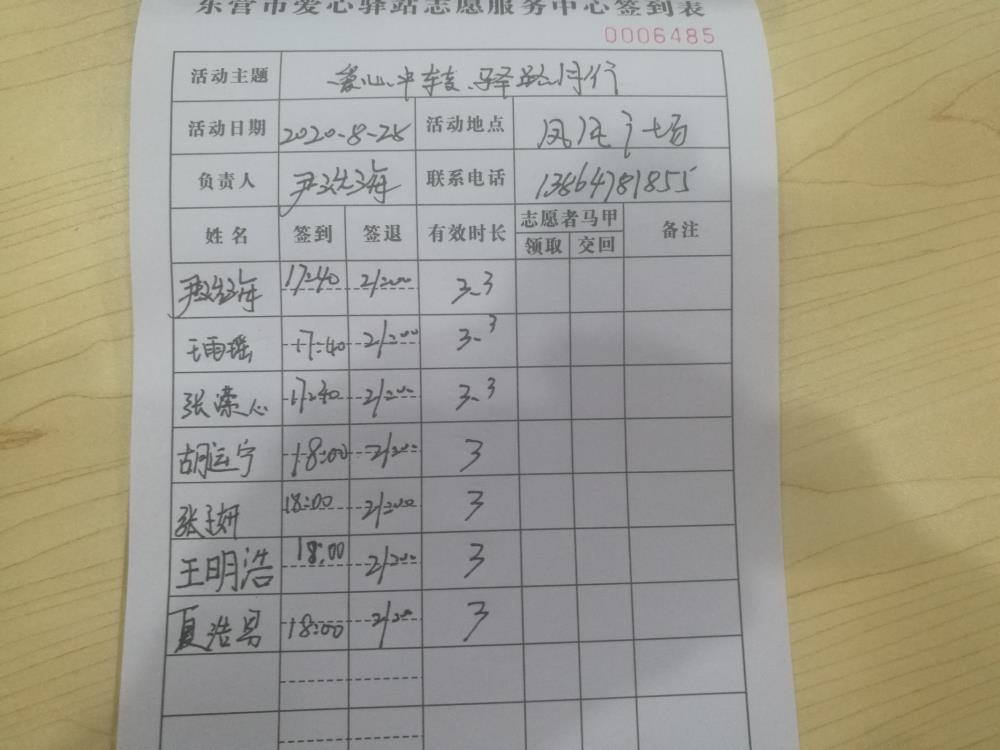 东营市爱心驿站志愿服务中心签到表
0006485
活动主题 爱心中转、驿路同行
活动日期 2020-8-28 活动地点 广场
负责人 联系电话 13864781855
姓名 签到 签退 有效时长 志愿者马甲 备注
领取 交回
17:40 21:00 3.3
王雨瑶 17:40 21:00 3.3
张滦心 17:40 21:00 3.3
胡运宁 18:00 21:00 3
张子妍 18:00 21:00 3
王明浩 18:00 21:00 3
夏浩 18:00 21:00 3